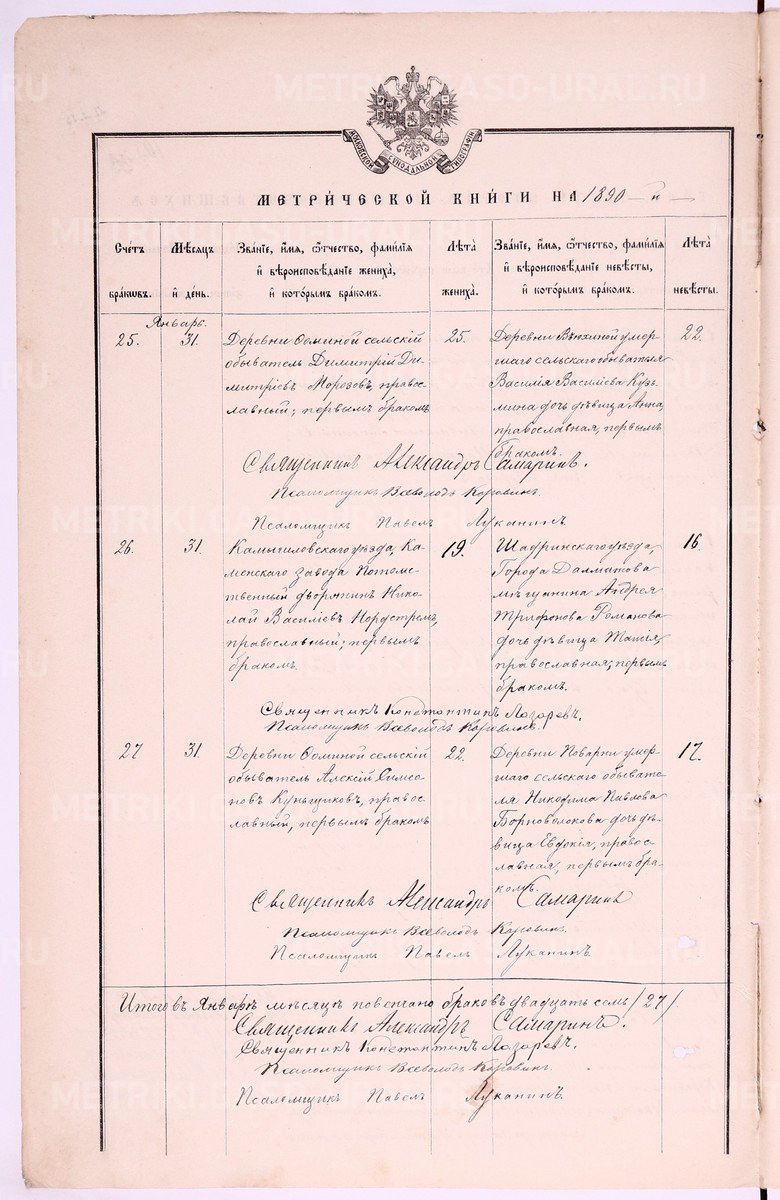 МОСКОВСКОЙ СѴНОДАЛЬНОЙ ТИПОГРАФІИ
МЕТРИ́ЧЕСКОЙ КНИ́ГИ НА 1890 й
Сче́тъ бра́кѡвъ.
Мѣ́сяцъ и҆ де́нь.
Зва́нїе, и҆́мѧ, ѻ҆́тчество, фами́лїѧ и҆ вѣроисповѣ́данїе жениха̀, и҆ кото́рымъ бра́комъ.
Лѣ́та жениха̀.
Зва́нїе, и҆́мѧ, ѻ҆́тчество, фами́лїѧ и҆ вѣроисповѣ́данїе невѣ́сты, и҆ кото́рымъ бра́комъ.
Лѣ́та невѣ́сты.
Январь.
25.
31.
Деревни Ѳоминой сельскій
обыватель Димитрій Ди-
митріевъ Морозовъ, право-
славный; первымъ бракомъ
25.
Деревни умер-
шаго сельскаго обывателя
Василія Василіева Кузь-
мина дочь дѣвица Анна,
православная, первымъ
бракомъ.
22.
Священникъ Александръ Самаринъ.
Псаломщикъ Всеволодъ Коровинъ.
Псаломщикъ Павелъ Луканинъ
26.
31.
Камышловскаго уѣзда, Ка-
менскаго завода Потом-
ственный дворянинъ Нико-
лай Василіевъ Нордстремъ,
православный; первымъ
бракомъ.
19.
Шадринскаго уѣзда,
Города Далматова
мѣщанина Андрея
Трифонова Романова
дочь дѣвица Таисія,
православная, первымъ
бракомъ.
16.
Священникъ Константинъ Лазаревъ.
Псаломщикъ Всеволодъ Коровинъ.
27
31.
Деревни Ѳоминой сельскій
обыватель Алексій Симео-
новъ Куньщиковъ, право-
славный, первымъ бракомъ
22.
Деревни Поварни умер-
шаго сельскаго обывате-
ля Никодима Павлова
Борноволокова дочь дѣ-
вица Евдокія, право-
славная, первымъ бра-
комъ.
17.
Священникъ Александръ Самаринъ
Псаломщикъ Всеволодъ Коровинъ.
Псаломщикъ Павелъ Луканинъ
Итого въ Январѣ мѣсяцѣ повѣнчано браковъ двадцать семь /27/
Священникъ Александръ Самаринъ.
Священникъ Константинъ Лазаревъ.
Псаломщикъ Всеволодъ Коровинъ
Псаломщикъ Павелъ Луканинъ.